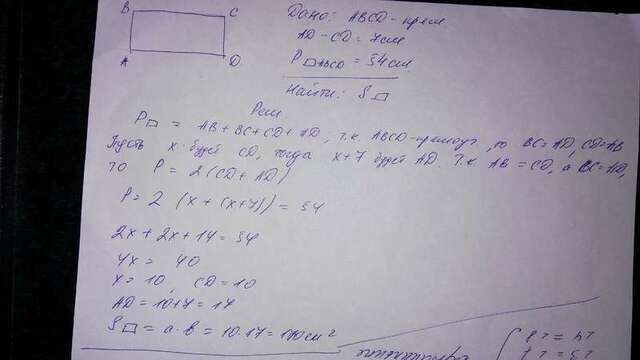 B C
A D
Дано: ABCD - прям
AD - CD = 7см
P▭ABCD = 54см
Найти: S▭
Реш
P▭ = AB + BC + CD + AD, т.к. ABCD - прямоуг, то BC = AD, CD = AB
Пусть x будет CD, тогда x+7 будет AD. Т.к. AB = CD, а BC = AD,
то P = 2(CD + AD)
P = 2 (x + (x+7)) = 54
2x + 2x + 14 = 54
4x = 40
x = 10, CD = 10
AD = 10+7 = 17
S▭ = a·b = 10·17 = 170 см²